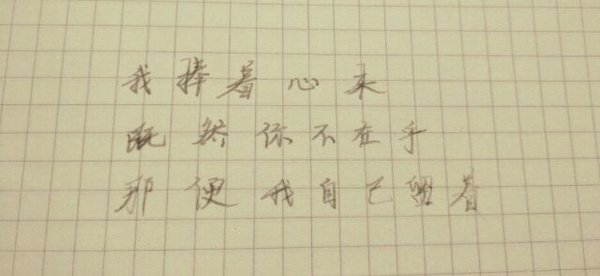 我捧着心来
既然你不在乎
那便我自己留着